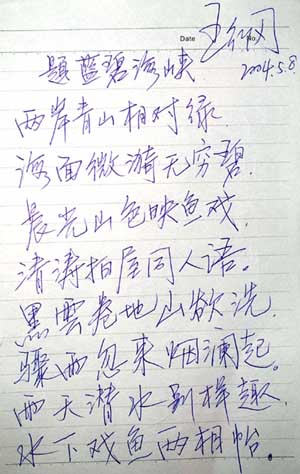 Date No.
王红网
题蓝碧海峡 2004.5.8
两岸青山相对绿.
海面微漪无穷碧.
晨光山色映鱼戏.
清涛拍屋同人语。
黑雲卷地山欲洗.
骤雨忽来烟澜起。
雨天潜水别样趣.
水下戏鱼两相怡。